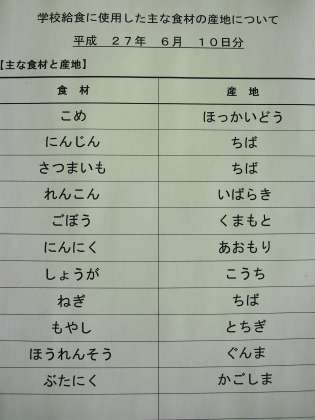 学校給食に使用した主な食材の産地について
平成 27年 6月 10日分
[主な食材と産地]
食 材 産 地
こめ ほっかいどう
にんじん ちば
さつまいも ちば
れんこん いばらき
ごぼう くまもと
にんにく あおもり
しょうが こうち
ねぎ ちば
もやし とちぎ
ほうれんそう ぐんま
ぶたにく かごしま